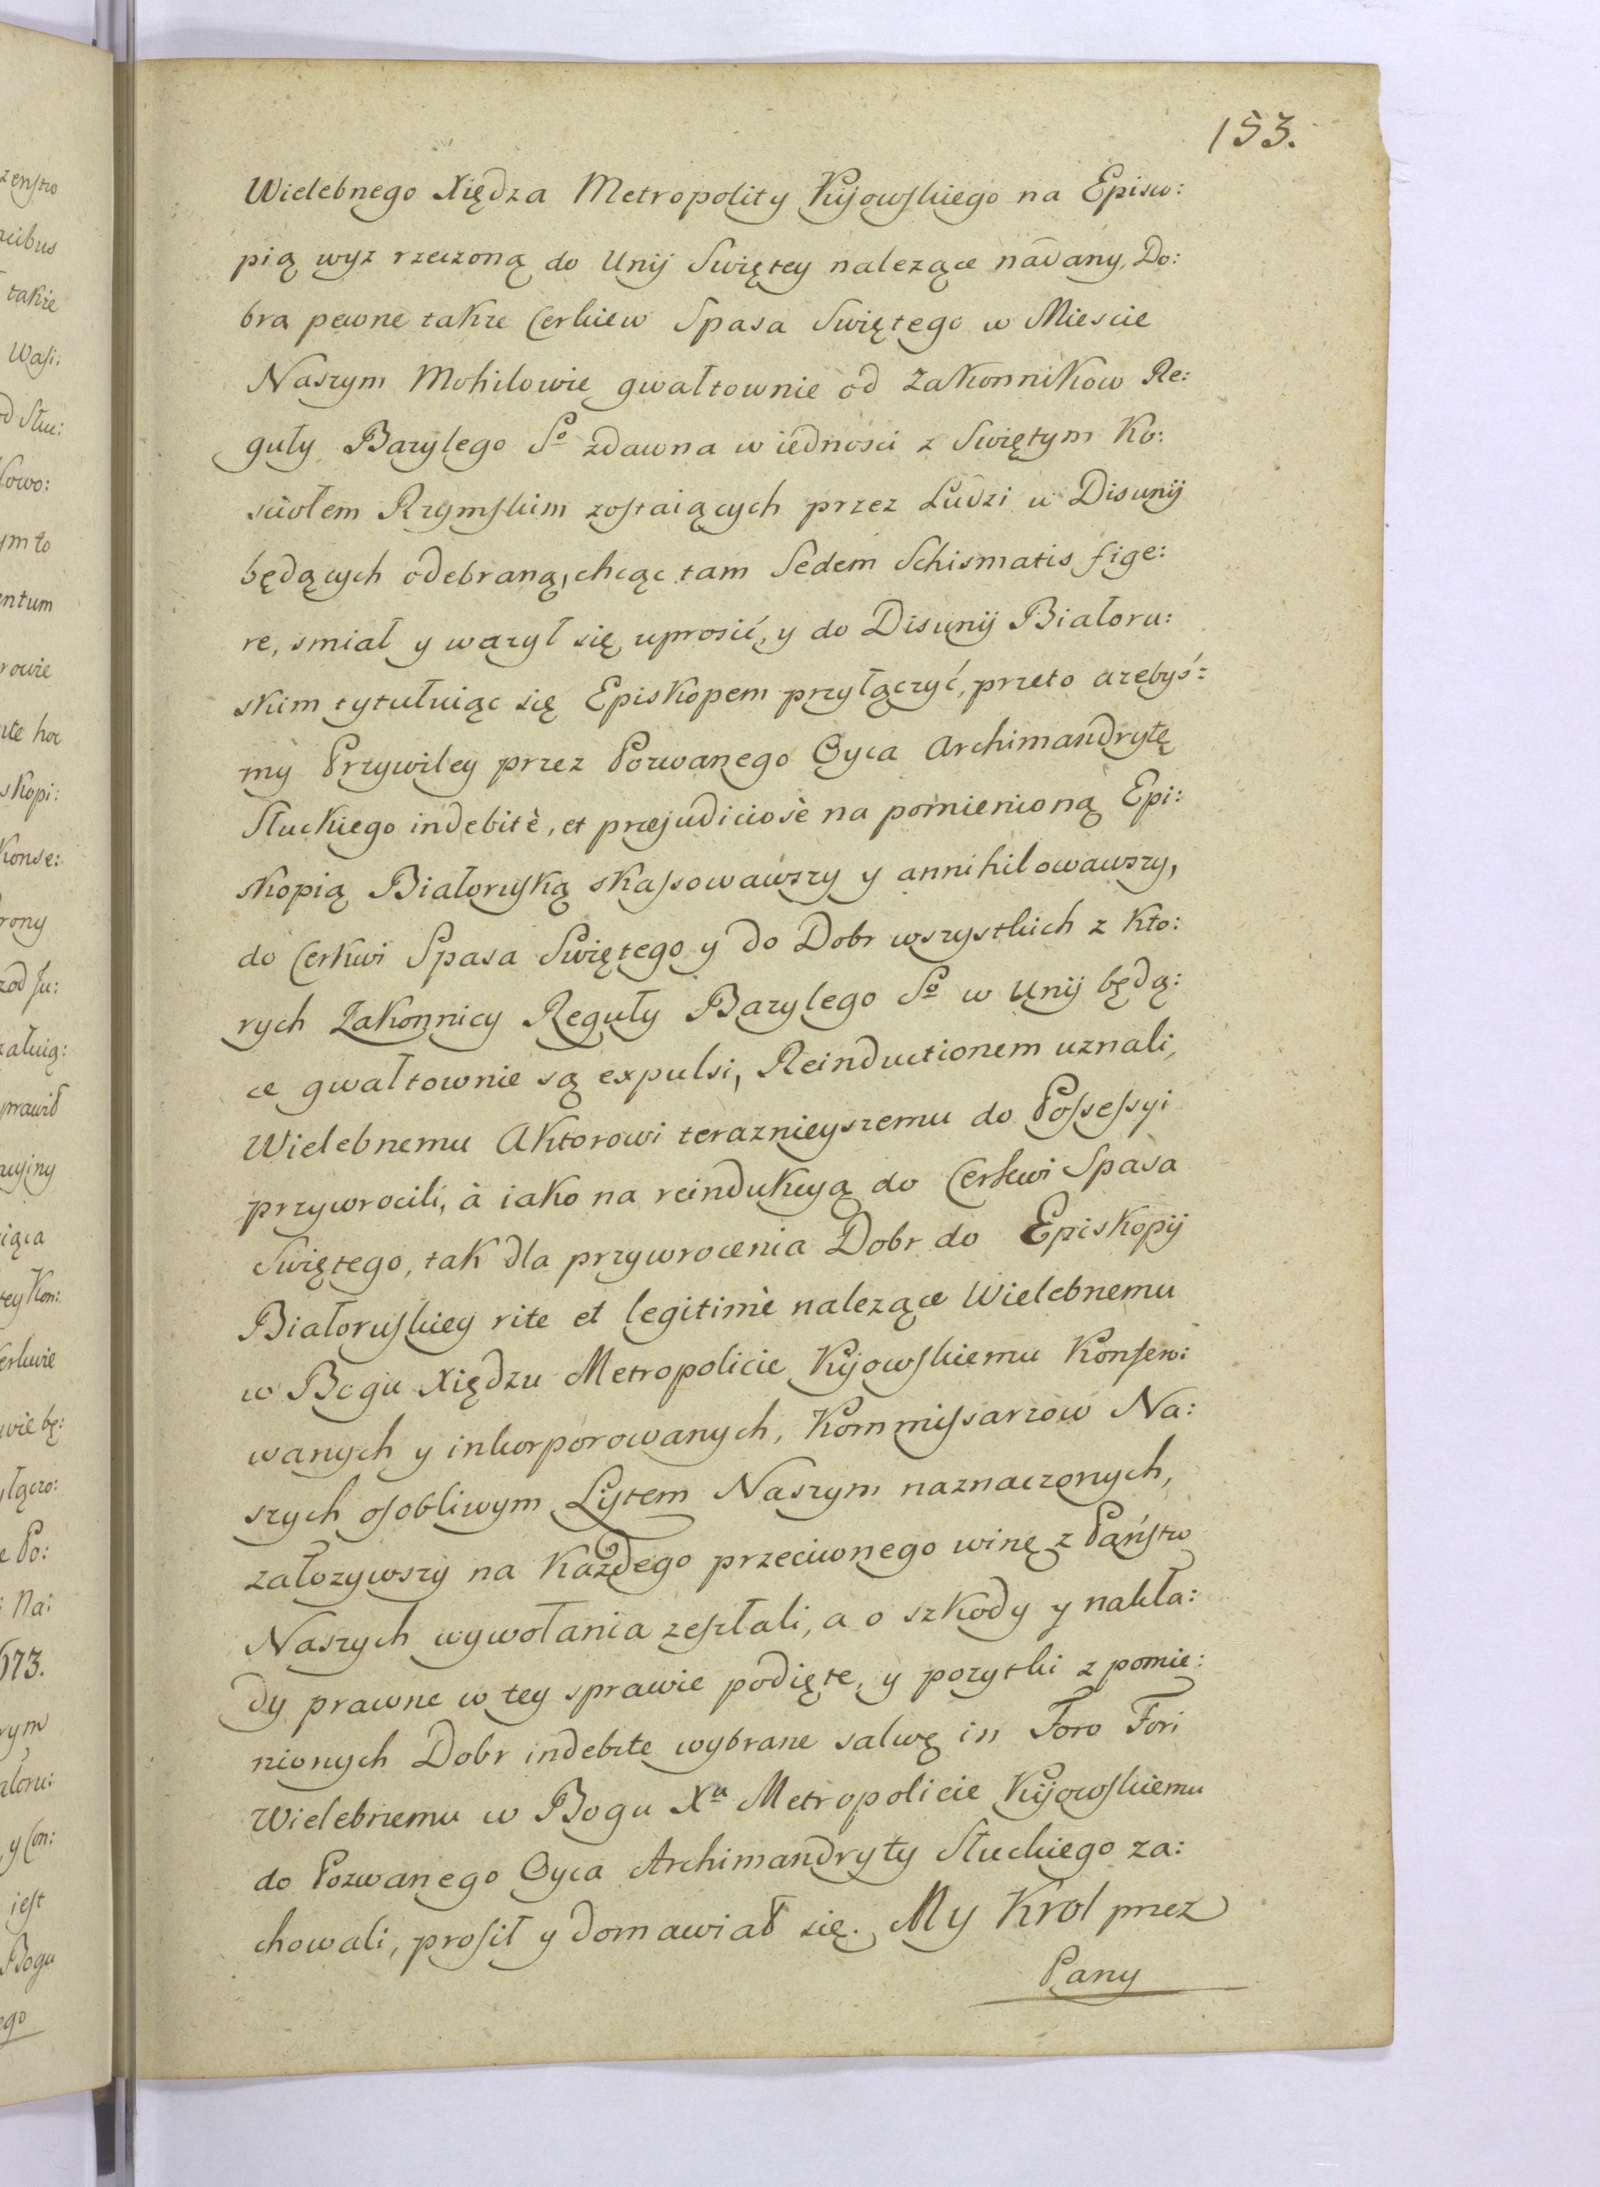 153.
Wielebnego Xiędza Metropolity Kijowskiego na Episko:
pią wyz rzeczoną do Unij Swiętey nalezące nadany, Do:
bra pewne takze Cerkiew Spasa Swiętego w Miescie
Naszym Mohilowie gwałtownie od Zakonnikow Re:
guły Bazylego So zdawna w iednosci z Swiętym Ko:
sciołem Rzymskim zostaiących przez Ludzi w Disunij
będących odebraną, chcąc tam Sedem Schismatis fige:
re, smiał y wazył się uprosić, y do Disunij Białoru:
skim tytułuiąc się Episkopem przyłączyć, przeto azebyś:
my Przywiley przez Pozwanego Oyca Archimandrytę
Słuckiego indebitè, et præjudiciosè na pomienioną Epi:
skopią Białoruską skassowawszy y annihilowawszy,
do Cerkwi Spasa Swiętego y do Dobr wszystkich z kto:
rych Zakonnicy Reguły Bazylego So w Unij będą:
ce gwałtownie są expulsi, Reinductionem uznali,
Wielebnemu Aktorowi teraznieyszemu do Possessyi
przywrocili, à iako na reindukcyą do Cerkwi Spasa
Swiętego, tak dla przywrocenia Dobr do Episkopij
Białoruskiey rite et legitimè nalezące Wielebnemu
w Bogu Xiędzu Metropolicie Kijowskiemu Konser:
wanych y inkorporowanych, Kommissarzow Na:
szych osobliwym Lystem Naszym naznaczonych,
załozywszy na Każdego przeciwnego winę z Państw
Naszych wywołania zesłali, a o szkody y nakła:
dy prawne w tey sprawie podięte, y pozytki z pomie:
nionych Dobr indebite wybrane salwę in Foro Fori
Wielebnemu w Bogu Xu Metropolicie Kijowskiemu
do Pozwanego Oyca Archimandryty Słuckiego za:
chowali, prosił y domawiał się. My Krol przez
Pany